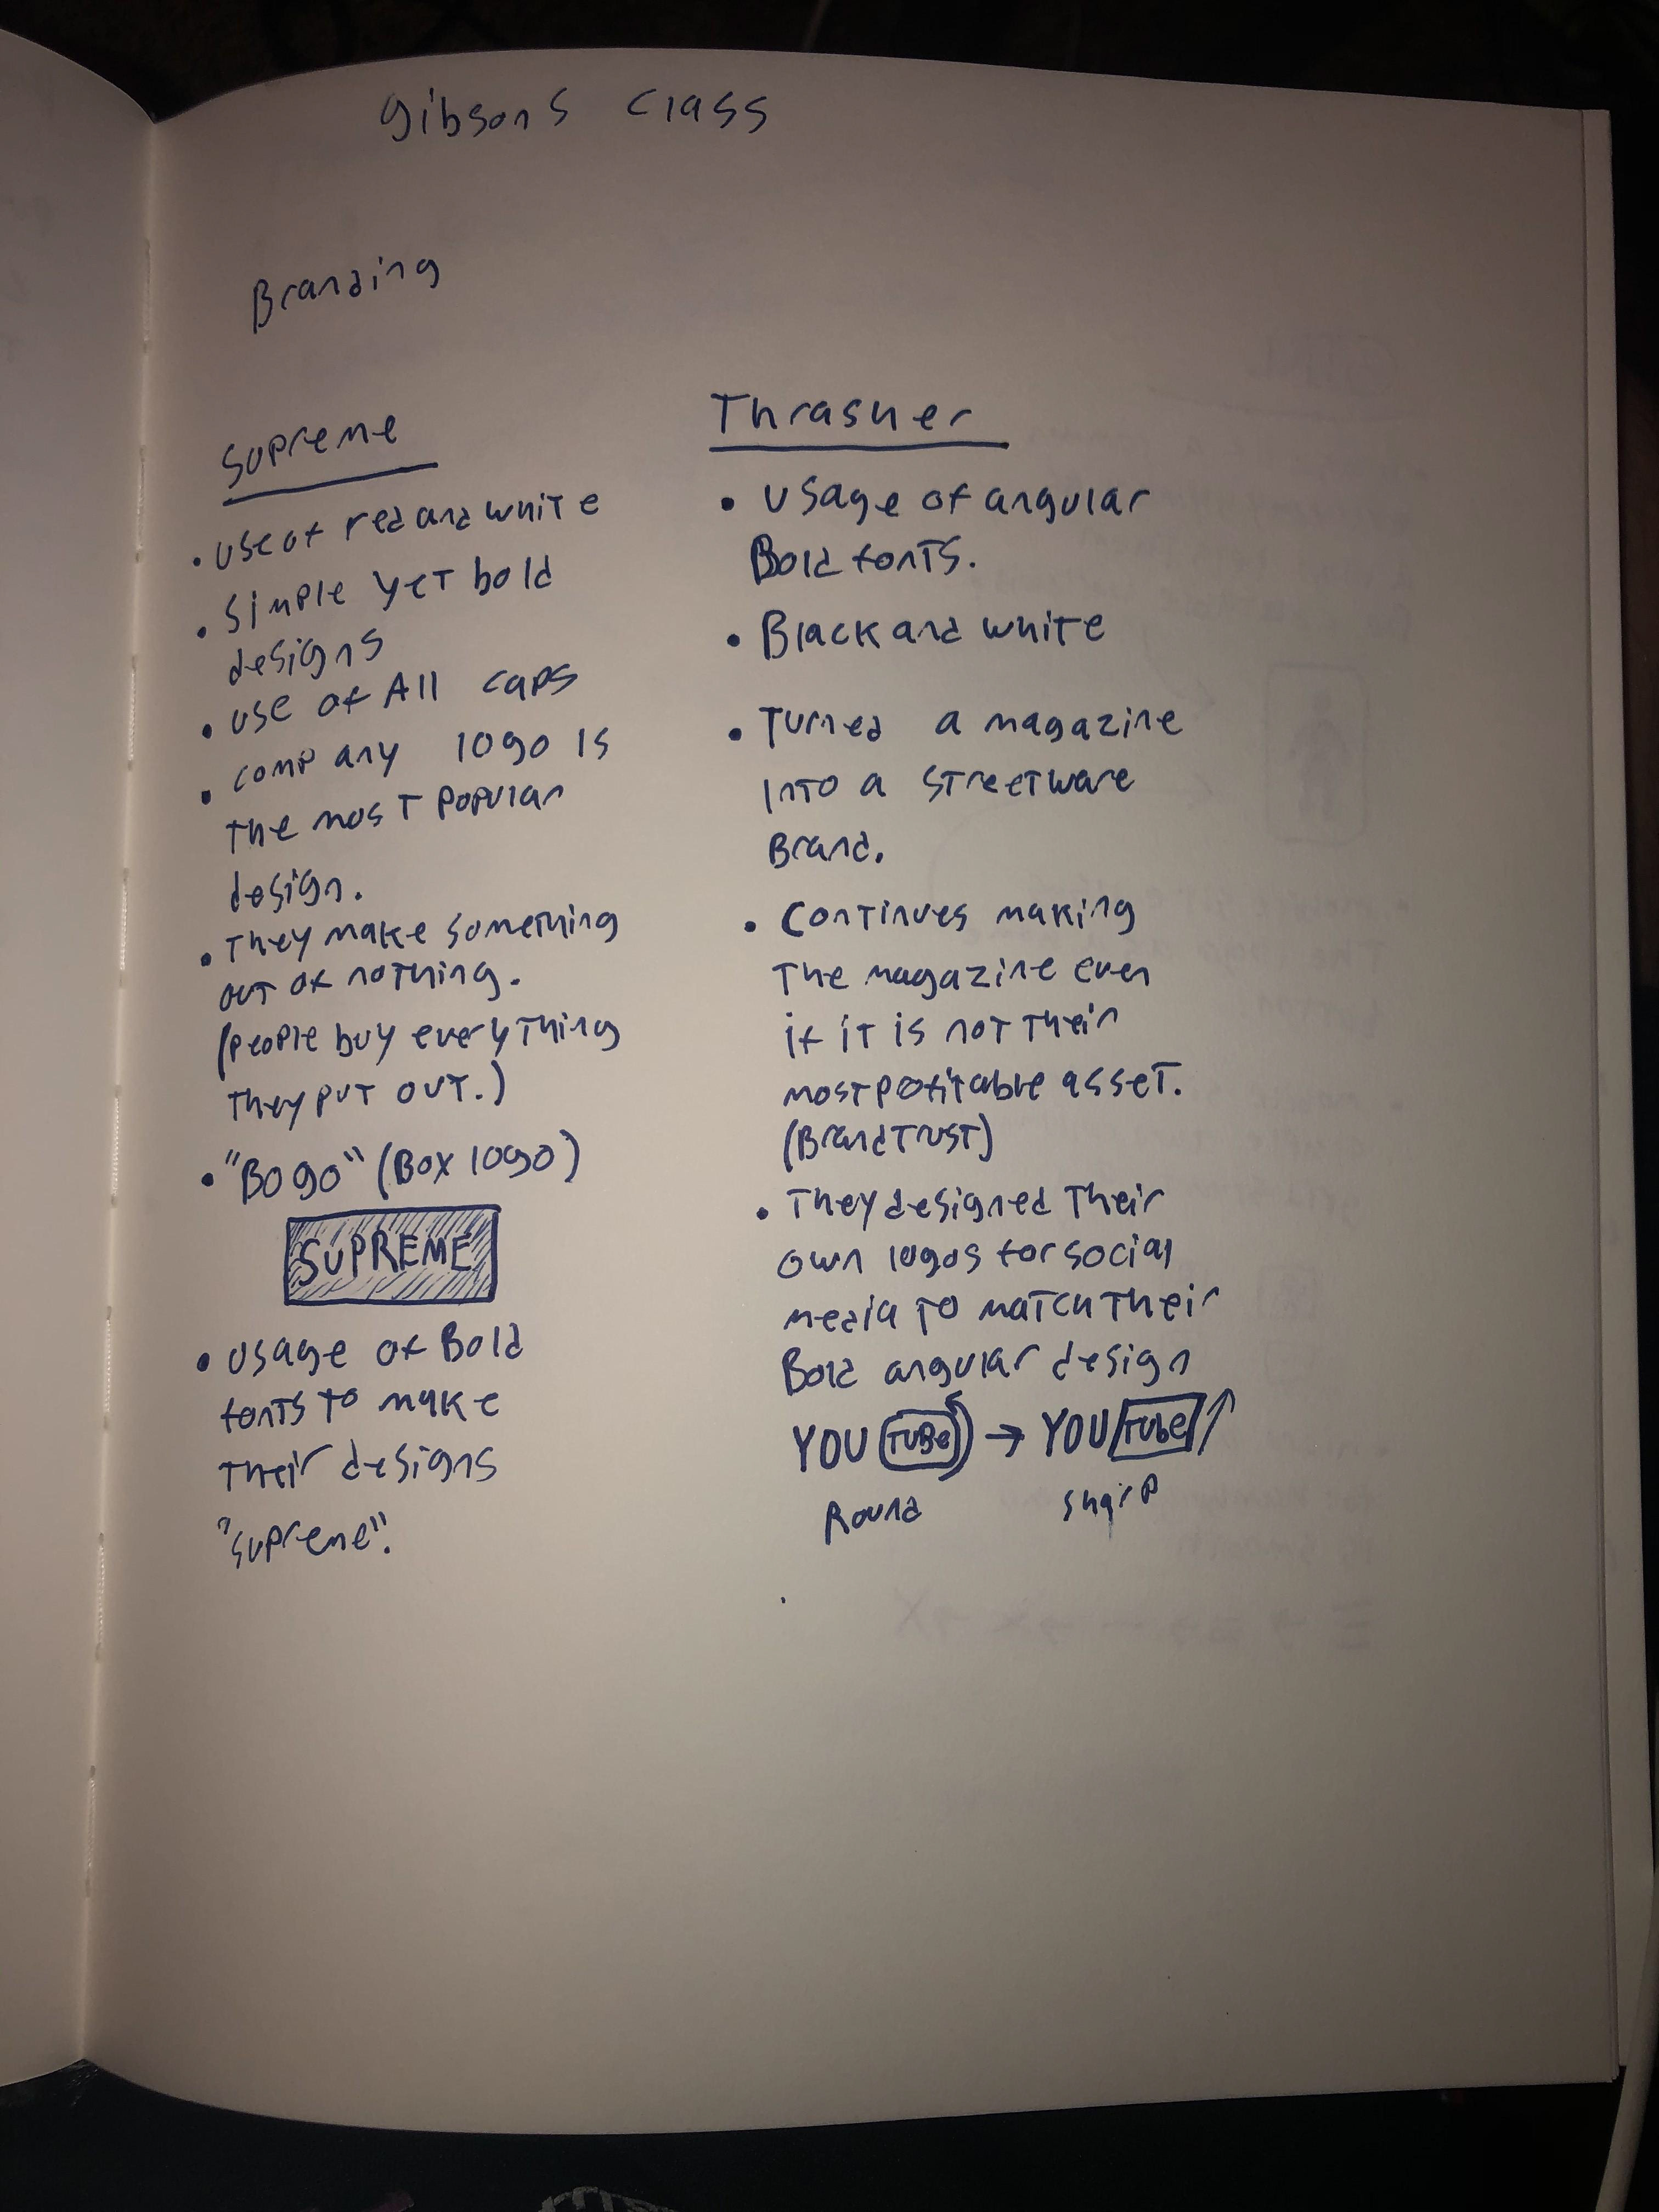 Gibsons Class
Branding
Supreme
• Use of red and white
• Simple yet bold
designs
• Use of All caps
• company logo is
the most popular
design.
• They make something
out of nothing.
(people buy everything
they put out.)
• "Bogo" (Box logo)
SUPREME
• Usage of Bold
fonts to make
their designs
"supreme".
Thrasher
• Usage of angular
Bold fonts.
• Black and white
• Turned a magazine
into a streetware
Brand.
• Continues making
the magazine even
if it is not their
most pofitable asset.
(Brand Trust)
• They designed their
own logos for social
media to match their
Bold angular design
YOU TUBe → YOU Tube ↑
Round sharp